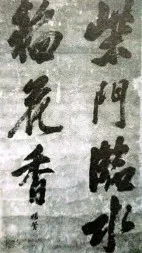 柴門臨水
稻花香